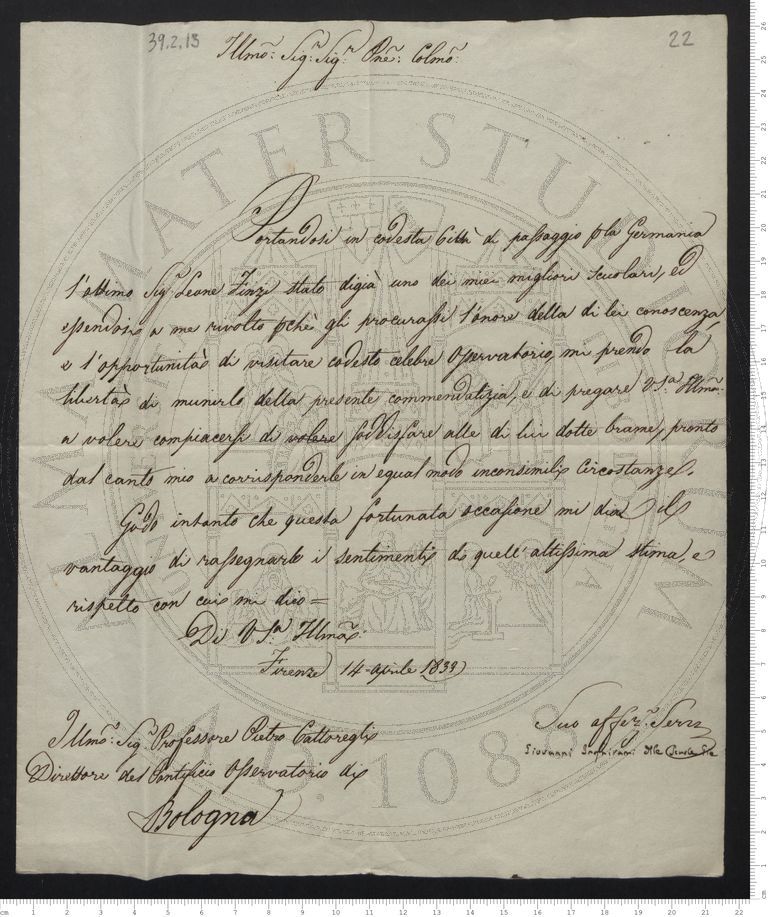 39.2.13
22
Illmo: Sigr: Sigr: Pne: Colmo:
Portandosi in codesta Città di passaggio p la Germania
l'ottimo Sigr: Leone Finzi stato digià uno dei miei migliori Scuolari, ed
essendosi a me rivolto pchè gli procurassi l'onore della di lei conoscenza,
e l'opportunità di visitare codesto celebre Osservatorio, mi prendo la
libertà di munirlo della presente commendatizia, e di pregare V. S.a Illma:
a volere compiacersi di volere soddisfare alle di lui dotte brame, pronto
dal canto mio a corrisponderle in egual modo in consimili Circostanze.
Godo intanto che questa fortunata occasione mi dia il
vantaggio di rassegnarle i sentimenti di quell'altissima stima, e
rispetto con cui mi dico =
Di V. S.a Illma:
Firenze 14 aprile 1839
Suo affez.o Serv
Giovanni Inghirami delle Scuole Pie
Illmo: Sigr: Professore Pietro Cattoregli
Direttore del Pontificio Osservatorio di
Bologna
ALMA MATER STUDIORUM
A.D. 1088